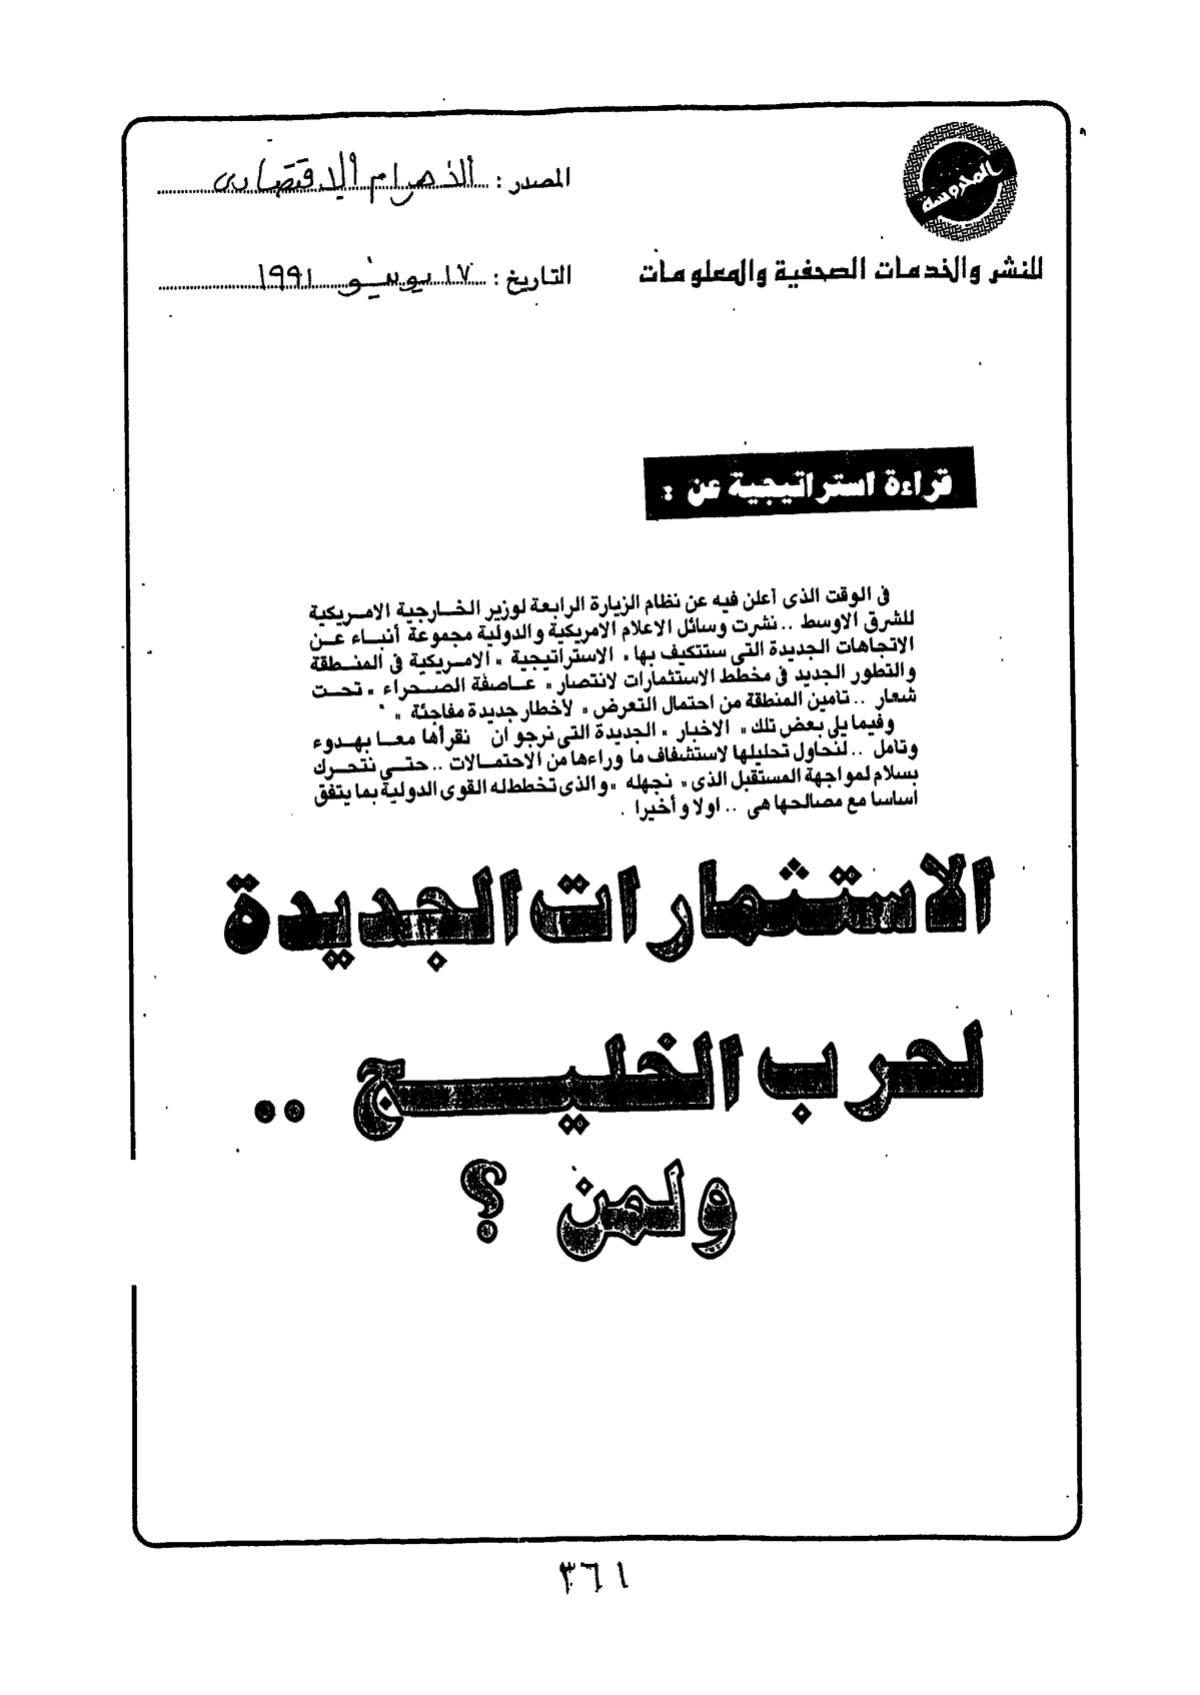 المحروسة
للنشر والخدمات الصحفية والمعلومات
المصدر : الأهرام الاقتصادى
التاريخ : ١٧ يونيو ١٩٩١
قراءة استراتيجية عن :
فى الوقت الذى أعلن فيه عن نظام الزيارة الرابعة لوزير الخـارجية الامـريكية
للشرق الاوسط .. نشرت وسائل الاعلام الامريكية والدولية مجموعة أنبـاء عـن
الاتجاهات الجديدة التى ستتكيف بها « الاستراتيجية » الامـريكية فى المنـطقة
والتطور الجديد فى مخطط الاستثمارات لانتصار « عـاصفة الصـحراء » تحـت
شعار .. تامين المنطقة من احتمال التعرض « لأخطار جديدة مفاجئة »
وفيما يلى بعض تلك « الاخبار » الجديدة التى نرجو ان نقرأها معـا بهـدوء
وتامل .. لنحاول تحليلها لاستشفاف ما وراءها من الاحتمـالات .. حتـى نتحـرك
بسلام لمواجهة المستقبل الذى « نجهله » والذى تخطط له القوى الدولية بما يتفق
اساسا مع مصالحها هى .. اولا و أخيرا .
الاستثمارات الجديدة
لحرب الخليـج ..
ولمن ؟
٣٦١